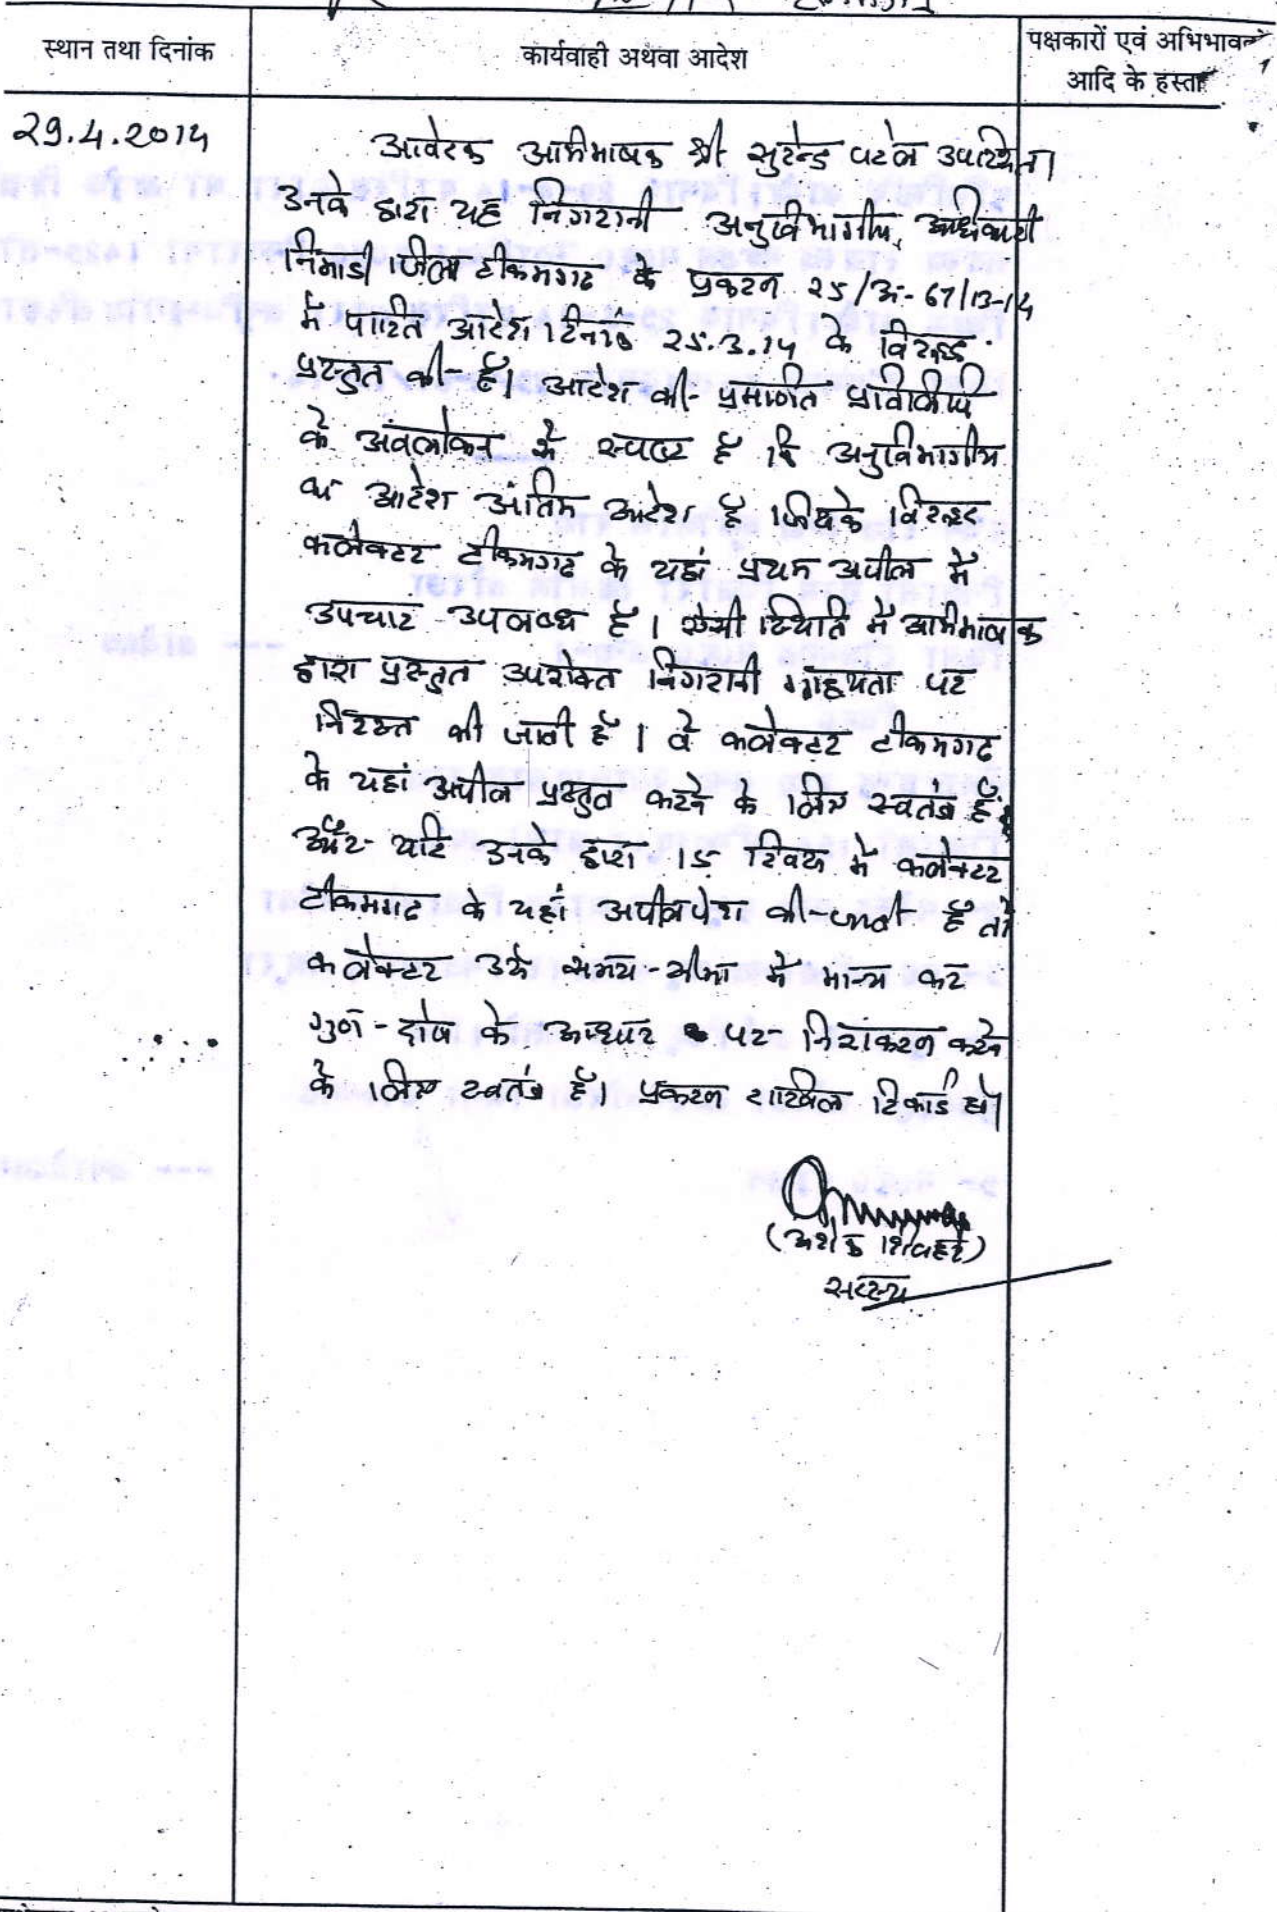 स्थान तथा दिनांक
कार्यवाही अथवा आदेश
पक्षकारों एवं अभिभावकों
आदि के हस्ता
29.4.2014
आवेदक अभिभाषक श्री सुरेन्द्र पटेल उपस्थित।
उनके द्वारा यह निगरानी अनुविभागीय अधिकारी
जिला टीकमगढ के प्रकरण 25/अ-67/13-14
में पारित आदेश दिनांक 25.3.14 के विरूद्ध
प्रस्तुत की है। आदेश की प्रमाणित प्रतिलिपि
के अवलोकन से स्पष्ट है कि अनुविभागीय
का आदेश अंतिम आदेश है जिसके विरूद्ध
कलेक्टर टीकमगढ के यहां प्रथम अपील में
उपचार उपलब्ध है। ऐसी स्थिति में अभिभाषक
द्वारा प्रस्तुत उपरोक्त निगरानी ग्राह्यता पर
निरस्त की जाती है। वे कलेक्टर टीकमगढ
के यहां अपील प्रस्तुत करने के लिए स्वतंत्र हैं।
और यदि उनके द्वारा 15 दिवस में कलेक्टर
टीकमगढ के यहां अपील पेश की जाती है तो
कलेक्टर उसे समय-सीमा में मान्य कर
गुण-दोष के आधार पर निराकरण करने
के लिए स्वतंत्र हैं। प्रकरण दाखिल रिकार्ड हो।
(अशोक शिवहरे)
सदस्य